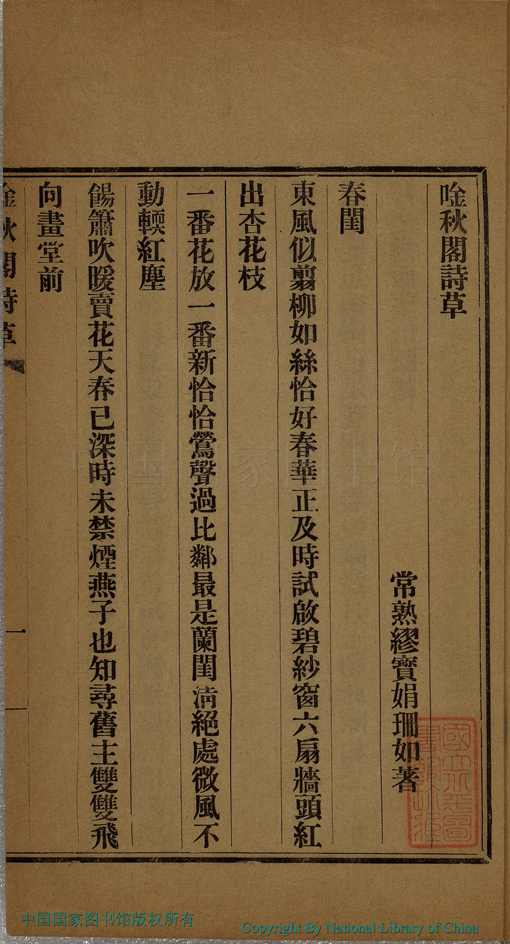 唫秋閣詩草
常熟繆寶娟珊如著
春閨
東風似翦柳如絲恰好春華正及時試啟碧紗窗六扇牆頭紅
出杏花枝
一番花放一番新恰恰鶯聲過比鄰最是蘭閨淸絕處微風不
動輭紅塵
餳簫吹暖賣花天春已深時未禁煙燕子也知尋舊主雙雙飛
向畫堂前
唫秋閣詩草
一
中国国家图书馆版权所有
Copyright By National Library of China